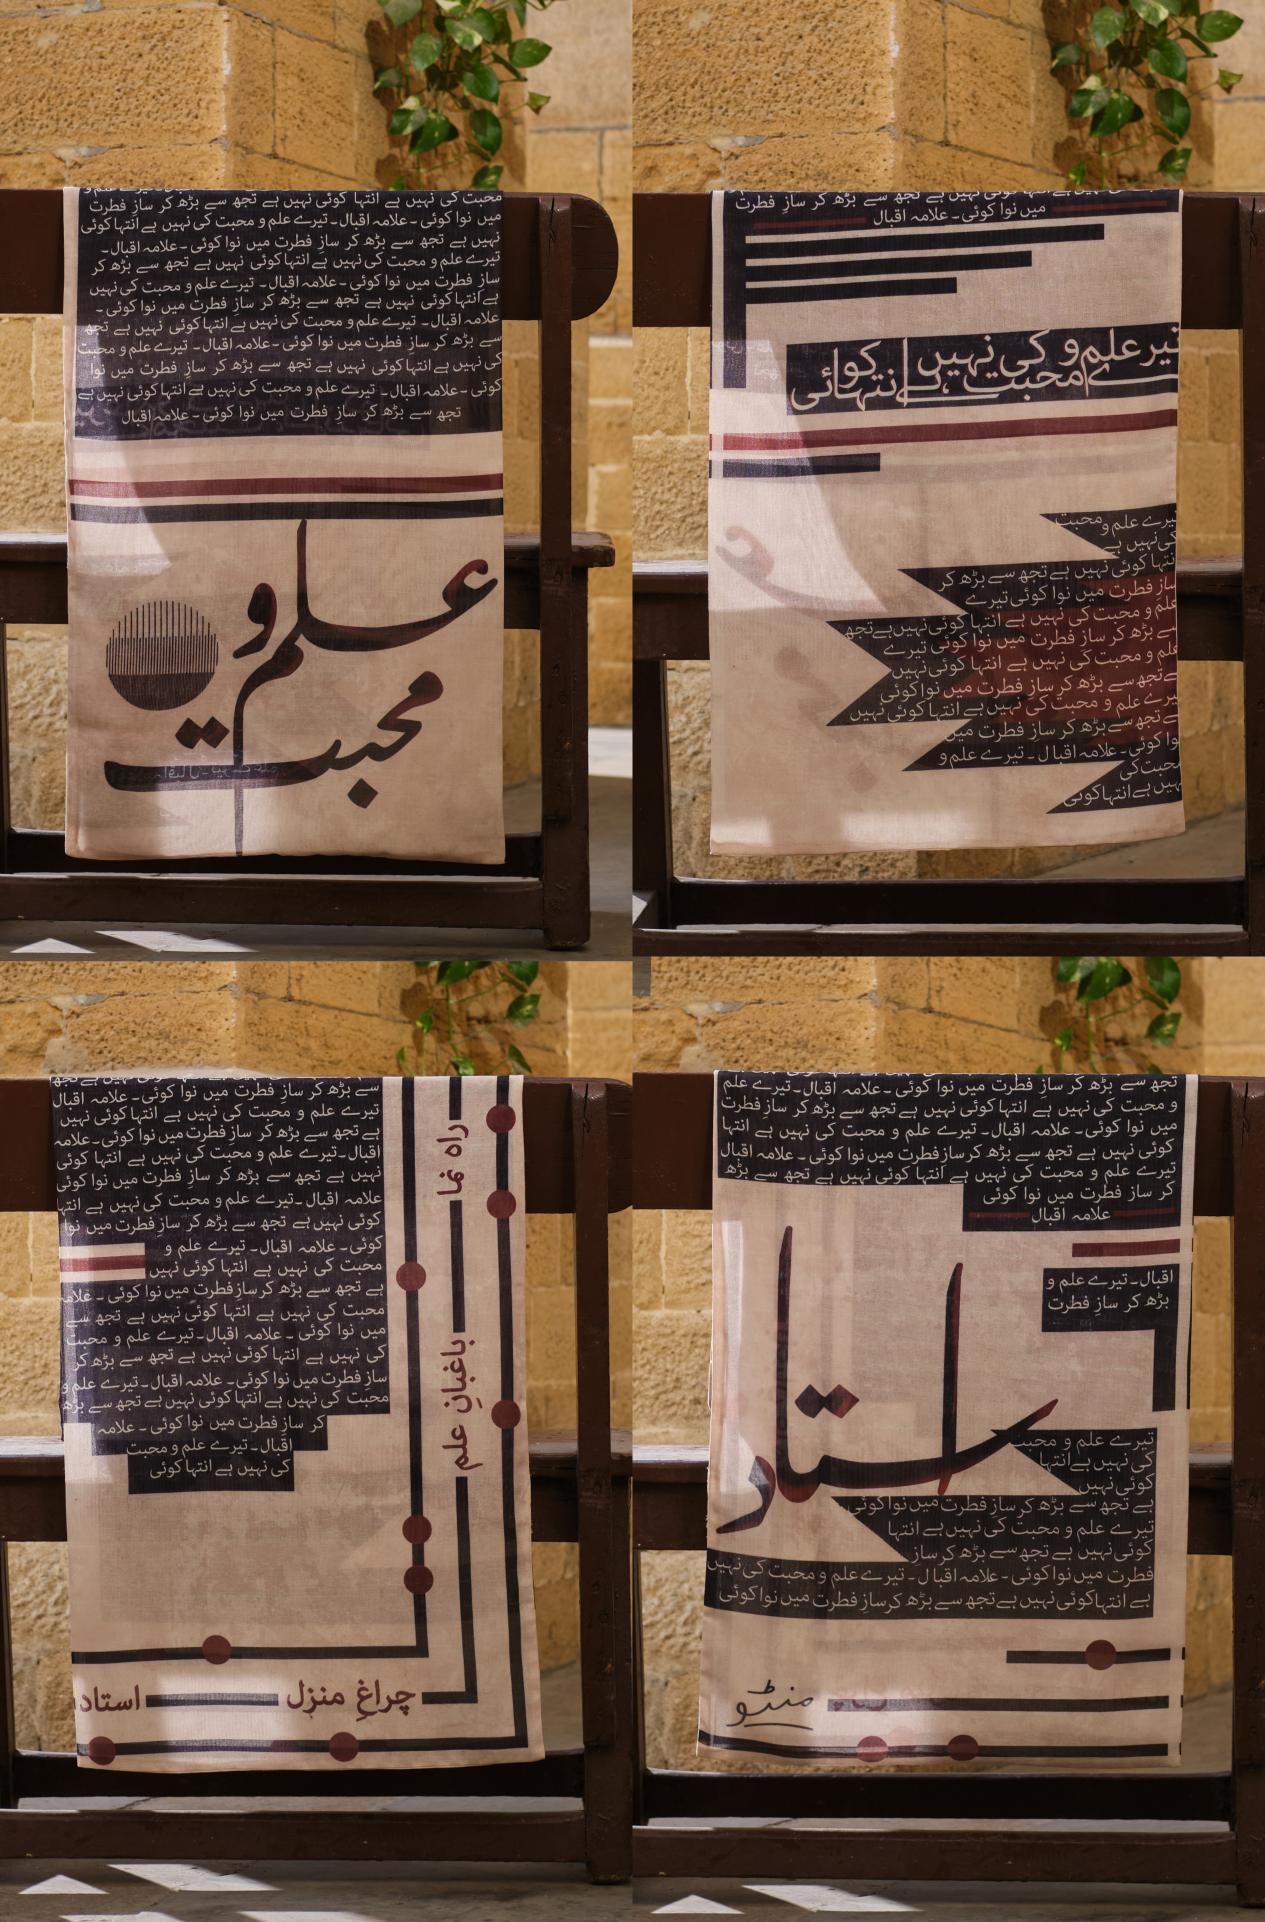 محبت کی نہیں ہے انتہا کوئی نہیں ہے تجھ سے بڑھ کر سازِ فطرت
میں نوا کوئی - علامہ اقبال - تیرے علم و محبت کی نہیں ہے انتہا کوئی
نہیں ہے تجھ سے بڑھ کر سازِ فطرت میں نوا کوئی - علامہ اقبال -
تیرے علم و محبت کی نہیں ہے انتہا کوئی نہیں ہے تجھ سے بڑھ کر
سازِ فطرت میں نوا کوئی - علامہ اقبال - تیرے علم و محبت کی نہیں
ہے انتہا کوئی نہیں ہے تجھ سے بڑھ کر سازِ فطرت میں نوا کوئی -
علامہ اقبال - تیرے علم و محبت کی نہیں ہے انتہا کوئی نہیں ہے تجھ
سے بڑھ کر سازِ فطرت میں نوا کوئی - علامہ اقبال - تیرے علم و محبت
کی نہیں ہے انتہا کوئی نہیں ہے تجھ سے بڑھ کر سازِ فطرت میں نوا
کوئی - علامہ اقبال - تیرے علم و محبت کی نہیں ہے انتہا کوئی نہیں ہے
تجھ سے بڑھ کر سازِ فطرت میں نوا کوئی - علامہ اقبال
علم و
محبت
نہیں ہے تجھ سے بڑھ کر سازِ فطرت
میں نوا کوئی - علامہ اقبال
تیرے علم و محبت کی نہیں ہے انتہا کوئی
تیرے علم و محبت
کی نہیں ہے
انتہا کوئی نہیں ہے تجھ سے بڑھ کر
سازِ فطرت میں نوا کوئی تیرے
علم و محبت کی نہیں ہے انتہا کوئی نہیں ہے تجھ
سے بڑھ کر سازِ فطرت میں نوا کوئی تیرے
علم و محبت کی نہیں ہے انتہا کوئی نہیں
ہے تجھ سے بڑھ کر سازِ فطرت میں نوا کوئی
تیرے علم و محبت کی نہیں ہے انتہا کوئی نہیں
ہے تجھ سے بڑھ کر سازِ فطرت میں
نوا کوئی - علامہ اقبال - تیرے علم و
محبت کی
نہیں ہے انتہا کوئی
سے بڑھ کر سازِ فطرت میں نوا کوئی - علامہ اقبال
تیرے علم و محبت کی نہیں ہے انتہا کوئی نہیں
ہے تجھ سے بڑھ کر سازِ فطرت میں نوا کوئی - علامہ
اقبال - تیرے علم و محبت کی نہیں ہے انتہا کوئی
نہیں ہے تجھ سے بڑھ کر سازِ فطرت میں نوا کوئی
علامہ اقبال - تیرے علم و محبت کی نہیں ہے انتہا
کوئی نہیں ہے تجھ سے بڑھ کر سازِ فطرت میں نوا
کوئی - علامہ اقبال - تیرے علم و
محبت کی نہیں ہے انتہا کوئی نہیں
ہے تجھ سے بڑھ کر سازِ فطرت میں نوا کوئی - علامہ
محبت کی نہیں ہے انتہا کوئی نہیں ہے تجھ سے
میں نوا کوئی - علامہ اقبال - تیرے علم و محبت
کی نہیں ہے انتہا کوئی نہیں ہے تجھ سے بڑھ کر
سازِ فطرت میں نوا کوئی - علامہ اقبال - تیرے علم و
محبت کی نہیں ہے انتہا کوئی نہیں ہے تجھ سے بڑھ
کر سازِ فطرت میں نوا کوئی - علامہ
اقبال - تیرے علم و محبت
کی نہیں ہے انتہا کوئی
راہ نما
باغبانِ علم
چراغِ منزل
استاد
تجھ سے بڑھ کر سازِ فطرت میں نوا کوئی - علامہ اقبال - تیرے علم
و محبت کی نہیں ہے انتہا کوئی نہیں ہے تجھ سے بڑھ کر سازِ فطرت
میں نوا کوئی - علامہ اقبال - تیرے علم و محبت کی نہیں ہے انتہا
کوئی نہیں ہے تجھ سے بڑھ کر سازِ فطرت میں نوا کوئی - علامہ اقبال
تیرے علم و محبت کی نہیں ہے انتہا کوئی نہیں ہے تجھ سے بڑھ
کر سازِ فطرت میں نوا کوئی
علامہ اقبال
اقبال - تیرے علم و
بڑھ کر سازِ فطرت
استاد
تیرے علم و محبت
کی نہیں ہے انتہا
کوئی نہیں
ہے تجھ سے بڑھ کر سازِ فطرت میں نوا کوئی
تیرے علم و محبت کی نہیں ہے انتہا
کوئی نہیں ہے تجھ سے بڑھ کر سازِ
فطرت میں نوا کوئی - علامہ اقبال - تیرے علم و محبت کی نہیں
ہے انتہا کوئی نہیں ہے تجھ سے بڑھ کر سازِ فطرت میں نوا کوئی
منٹو